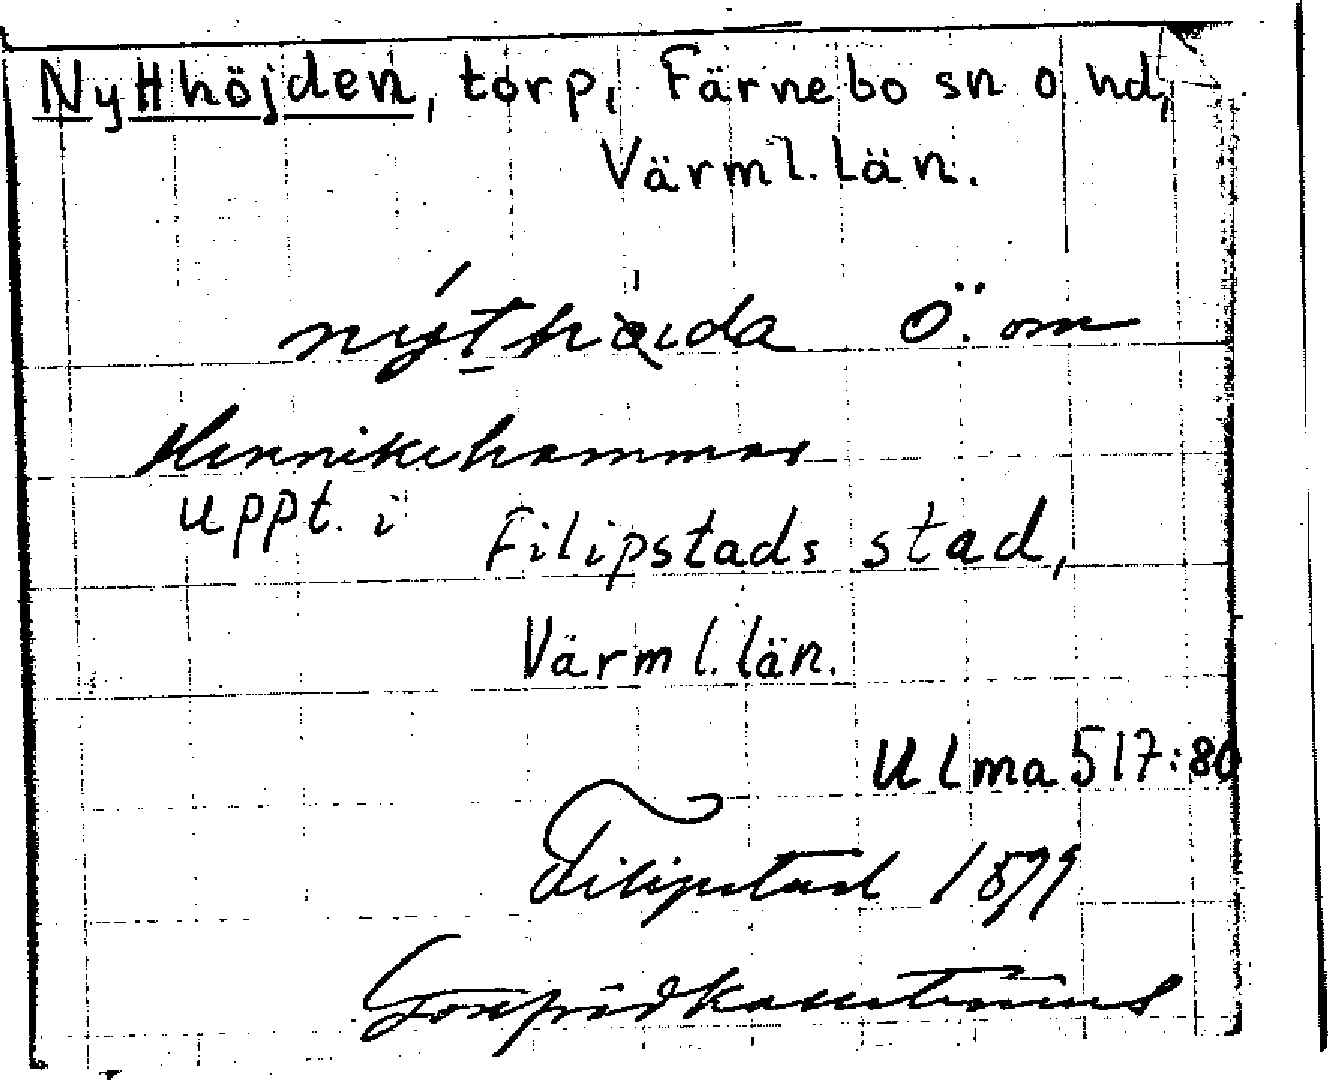 Nytthöjden, torp, Färnebo sn o hd,
Värml. län.
Ö. om
Hennikehammar
uppt. i Filipstads stad,
Värml. län.
Ulma 517:80
Filipstad 1899